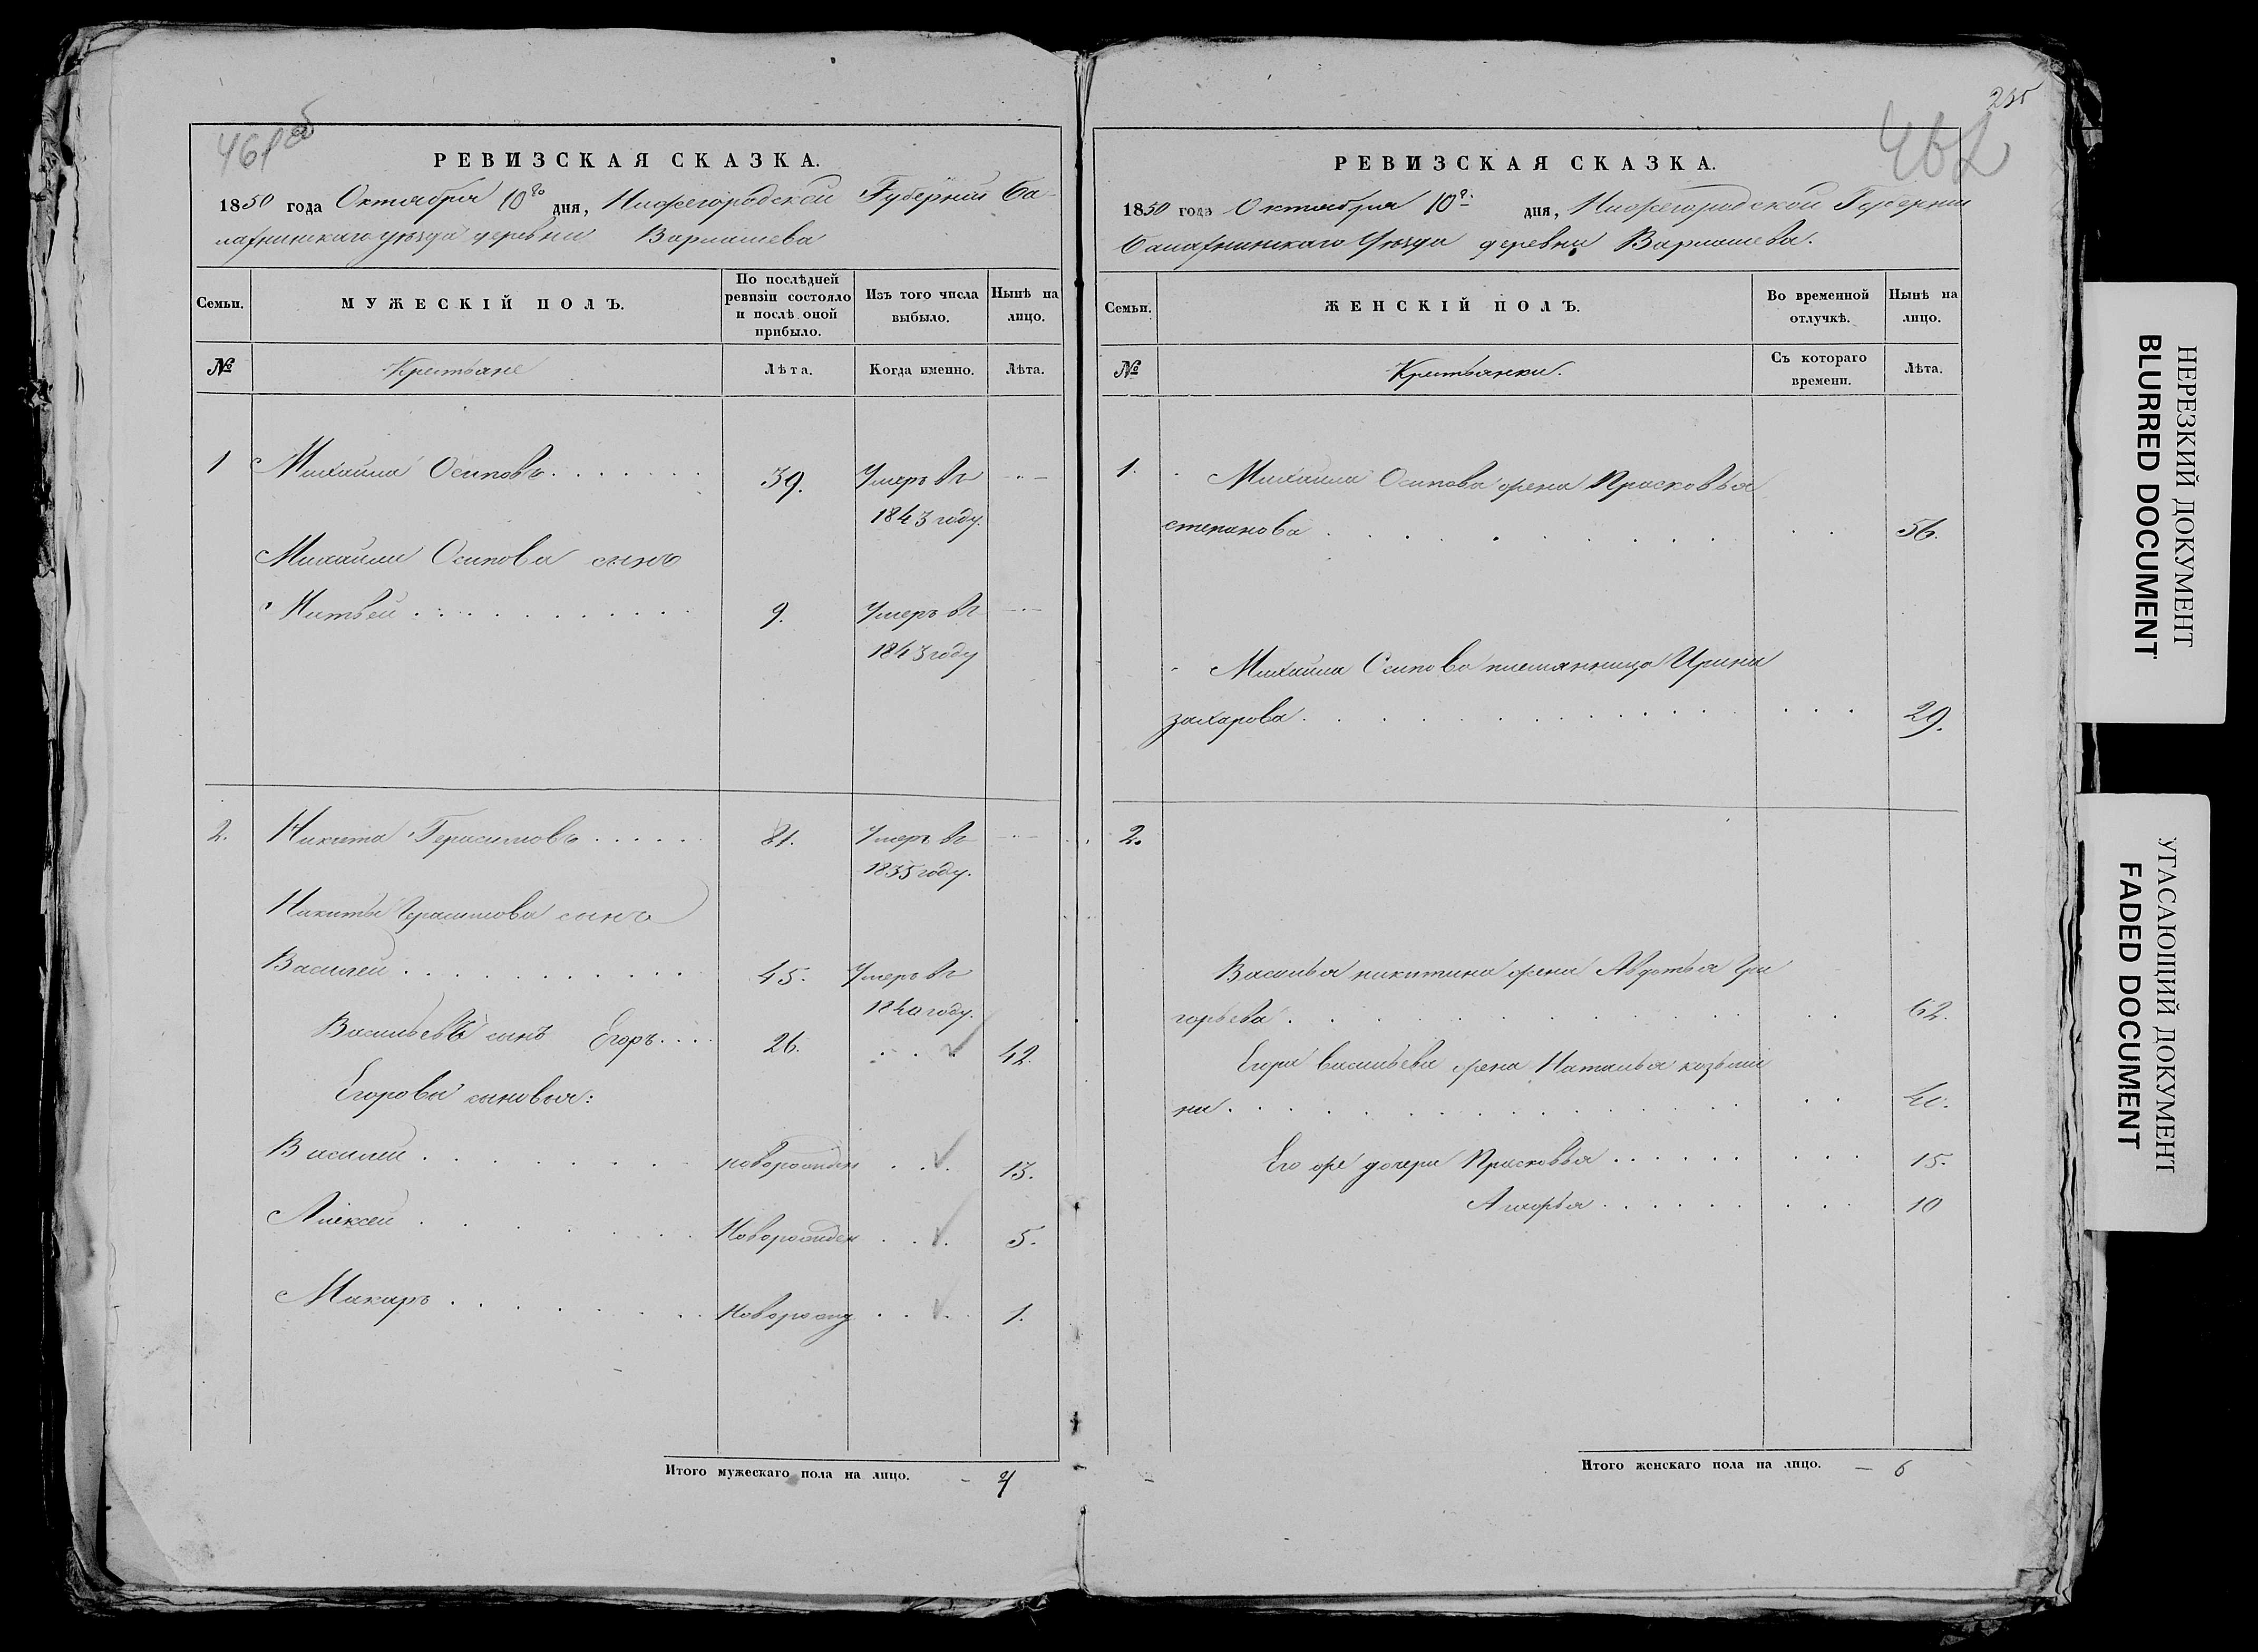 461 об
РЕВИЗСКАЯ СКАЗКА.
1850 года Октября 10го дня, Нижегородской Губернии Ба
лахнинскаго уезда деревни Вармашева
Семьи.
МУЖЕСКІЙ ПОЛЪ.
По послѣдней ревизіи состояло и послѣ оной прибыло.
Изъ того числа выбыло.
Нынѣ на лицо.
№
Крестьяне
Лѣта.
Когда именно.
Лѣта.
1 Михаила Осиповъ . . . . . . . 39. Умеръ въ
1843 году.
Михаила Осипова сынъ
Матвей . . . . . . . . . . . 9. Умеръ въ
1843 году
2. Никита Герасимовъ . . . . . 81. Умеръ въ
1835 году.
Никиты Герасимова сынъ
Василей . . . . . . . . . . . 45. Умеръ въ
1840 году.
Васильевъ сынъ Егоръ . . . . 26. . . . 42.
Егоровы сыновья:
Василий . . . . . . . . новорожден . . . 13.
Алексей . . . . . . . . Новорожден . . . 5.
Макаръ . . . . . . . . Новорожд . . . 1.
Итого мужескаго пола на лицо. - 4
235
462
РЕВИЗСКАЯ СКАЗКА.
1850 года Октября 10г. дня, Нижегородской Губернии
Балахнинскаго Уезда деревни Вармашева.
Семьи.
ЖЕНСКІЙ ПОЛЪ.
Во временной отлучкѣ.
Нынѣ на лицо.
№
Крестьянки.
Съ котораго времени.
Лѣта.
1. Михаила Осипова жена Прасковья
степанова . . . . . . . . . . 56.
Михаила Осипова племянница Ирина
захарова . . . . . . . . . . 29.
2.
Василья никитина жена Авдотья Гри
горьева . . . . . . . . . . 62.
Егора васильева жена Наталья козьми
на . . . . . . . . . .
Его же дочери Прасковья . . . . . . 15.
. . . . . . 10
Итого женскаго пола на лицо. — 6
НЕРЕЗКИЙ ДОКУМЕНТ
BLURRED DOCUMENT
УГАСАЮЩИЙ ДОКУМЕНТ
FADED DOCUMENT